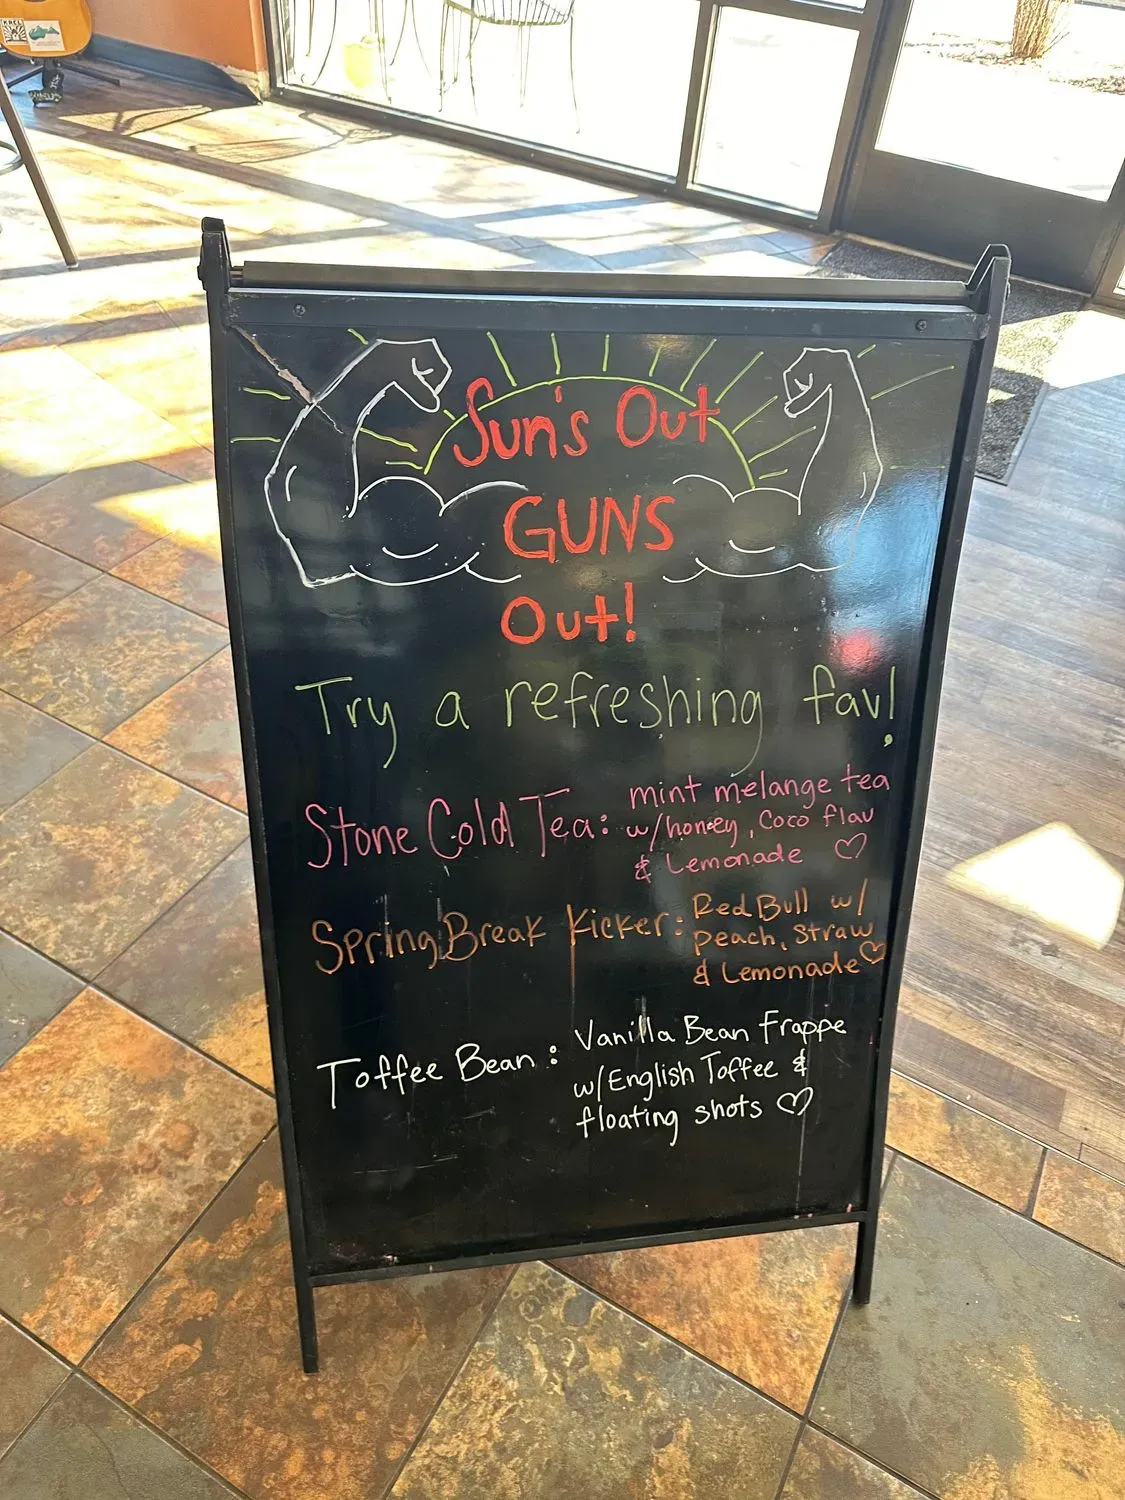 Sun's Out
GUNS
Out!
Try a refreshing fav!
Stone Cold Tea: mint melange tea
w/honey, Coco flav
& Lemonade
Spring Break Kicker: Red Bull w/
peach, Straw
& Lemonade
Toffee Bean: Vanilla Bean Frappe
w/English Toffee &
floating shots